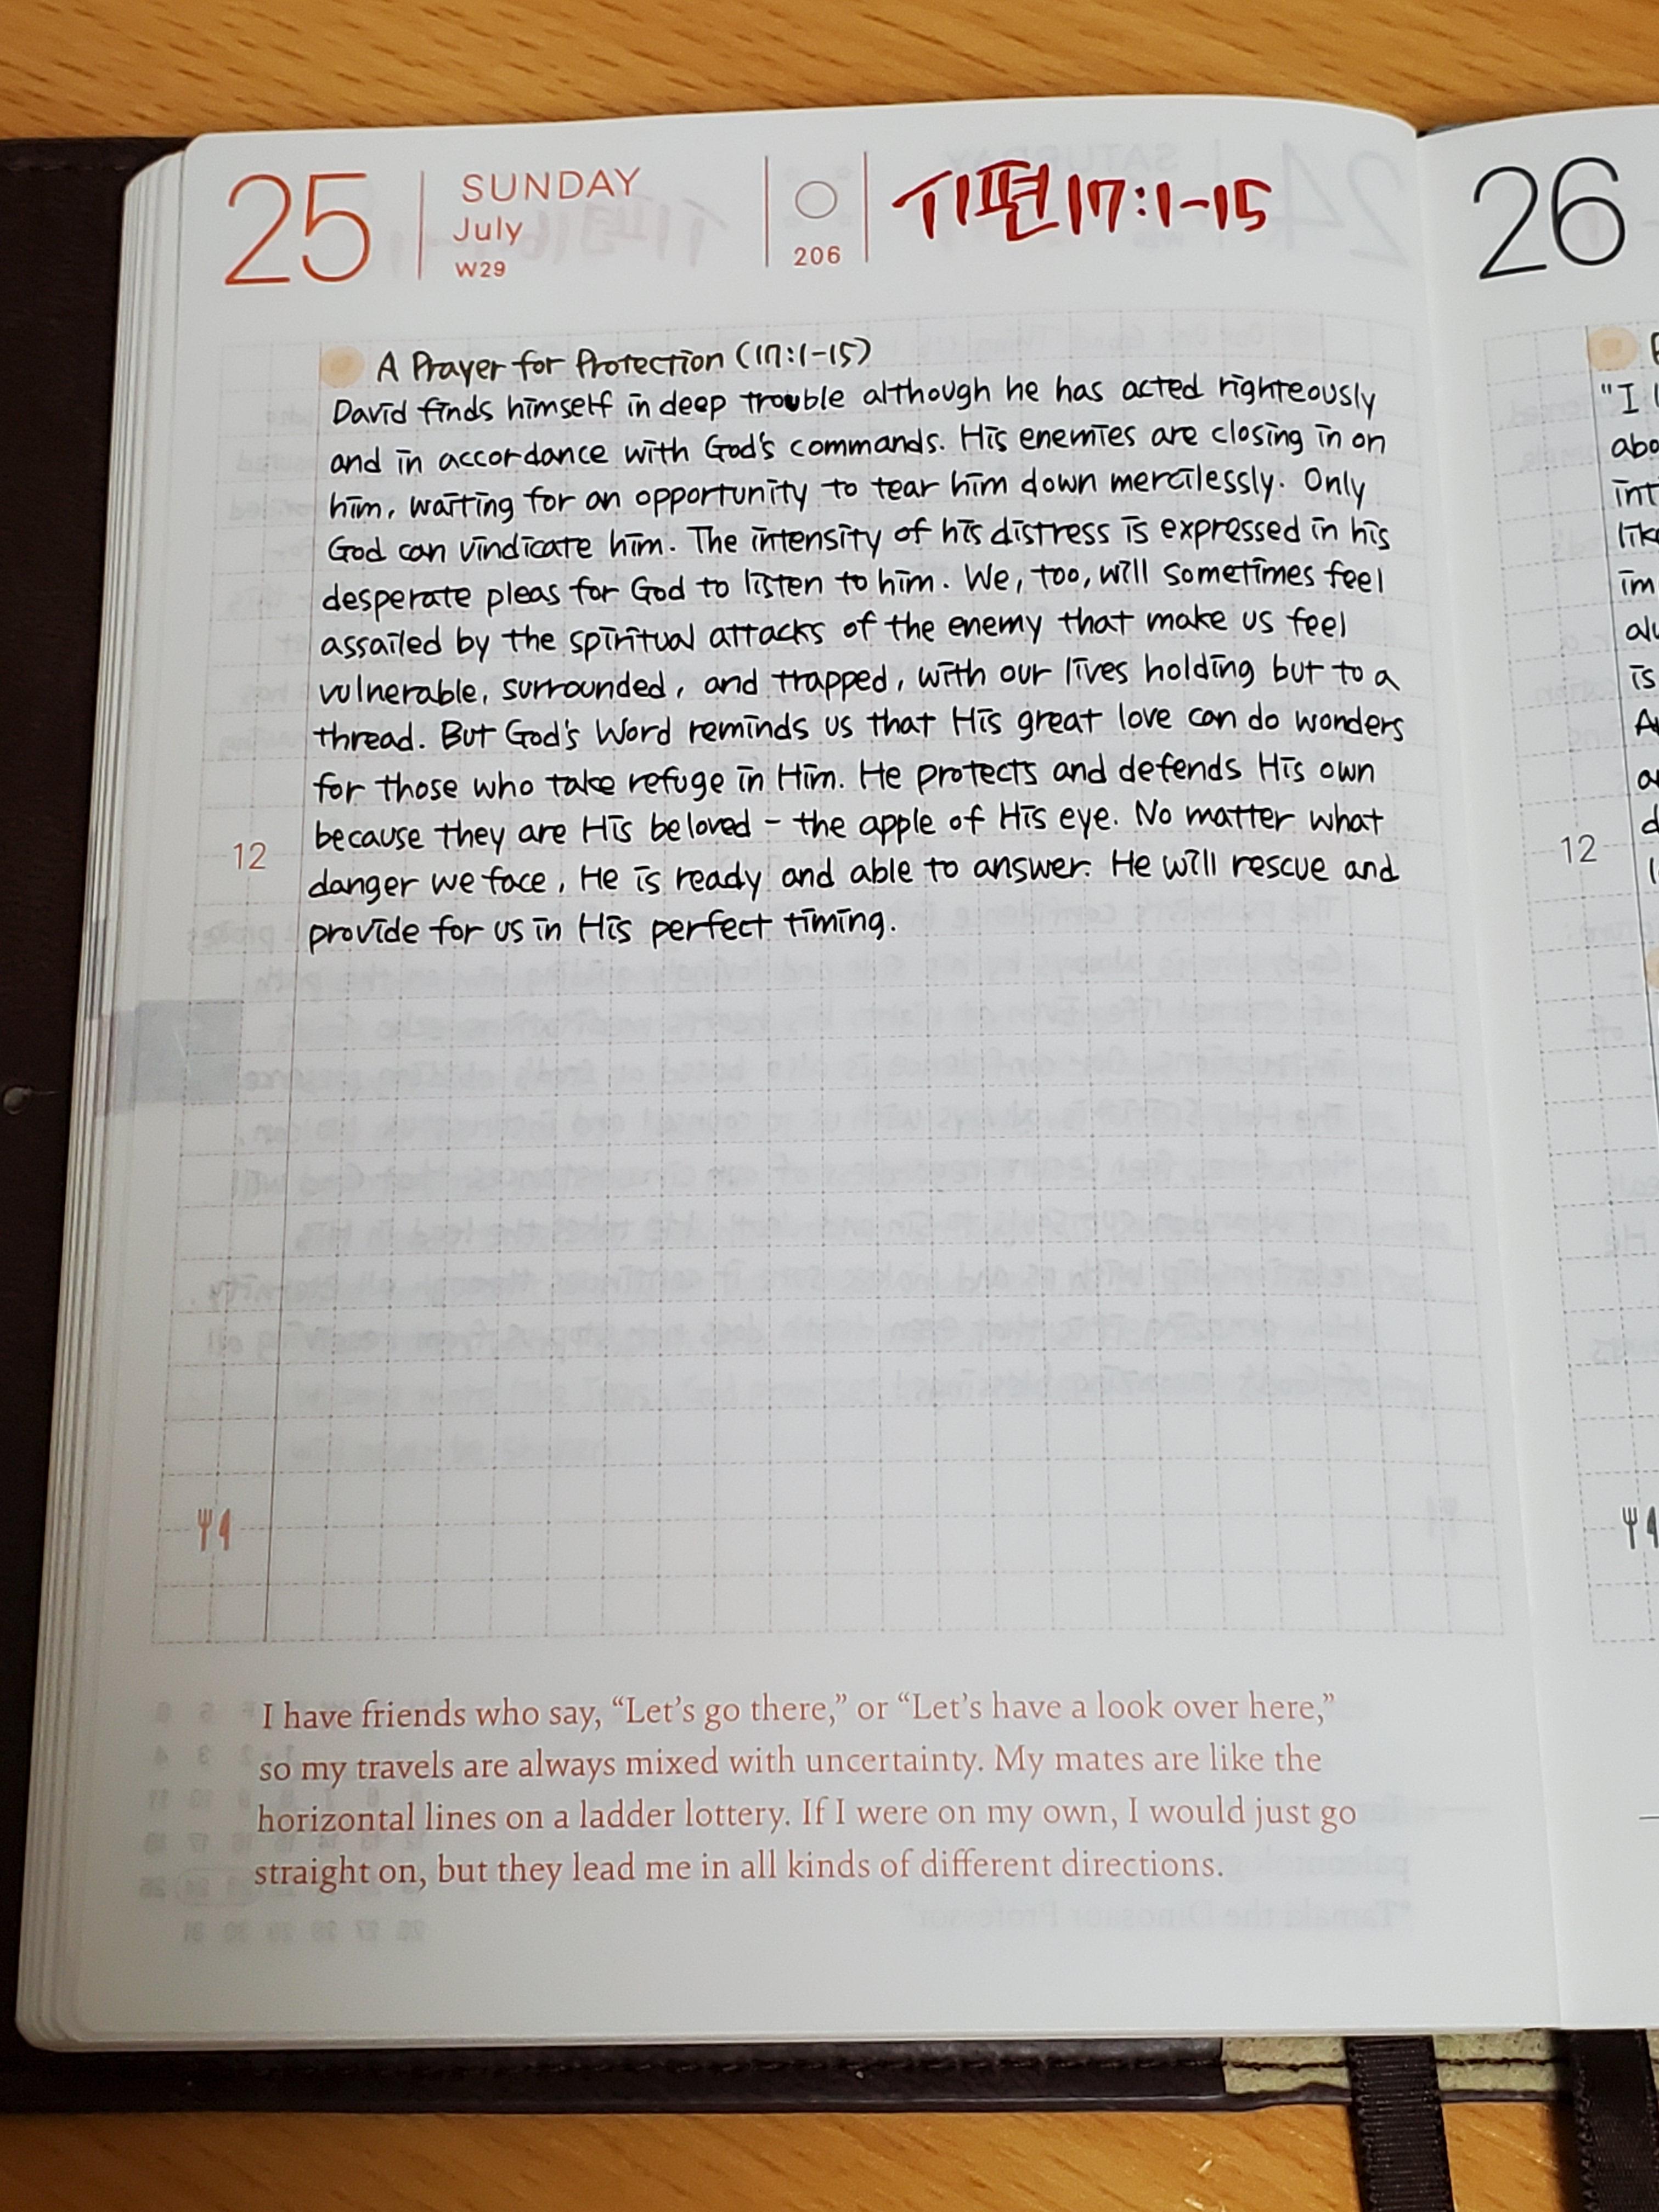 25
SUNDAY
July
W29
206
시편 17:1-15
A Prayer for Protection (17:1-15)
David finds himself in deep trouble although he has acted righteously
and in accordance with God's commands. His enemies are closing in on
him, waiting for an opportunity to tear him down mercilessly. Only
God can vindicate him. The intensity of his distress is expressed in his
desperate pleas for God to listen to him. We, too, will sometimes feel
assailed by the spiritual attacks of the enemy that make us feel
vulnerable, surrounded, and trapped, with our lives holding but to a
thread. But God's Word reminds us that His great love can do wonders
for those who take refuge in Him. He protects and defends His own
because they are His beloved - the apple of His eye. No matter what
12
danger we face, He is ready and able to answer. He will rescue and
provide for us in His perfect timing.
I have friends who say, “Let's go there,” or “Let's have a look over here,”
so my travels are always mixed with uncertainty. My mates are like the
horizontal lines on a ladder lottery. If I were on my own, I would just go
straight on, but they lead me in all kinds of different directions.
26
"I
is
12